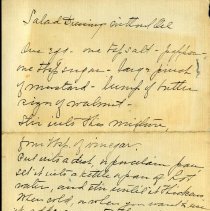 Salad Dressing without Oil
One egg - one tsp salt - pepper -
one tsp sugar - large pinch
of mustard - lump of butter
size of walnut -
Stir into this mixture,
four tbsp. of vinegar.
Put into a dish, or porcelain pan,
set it into a pan of hot
water, and stir until it thickens.
When cold, or when you want to use